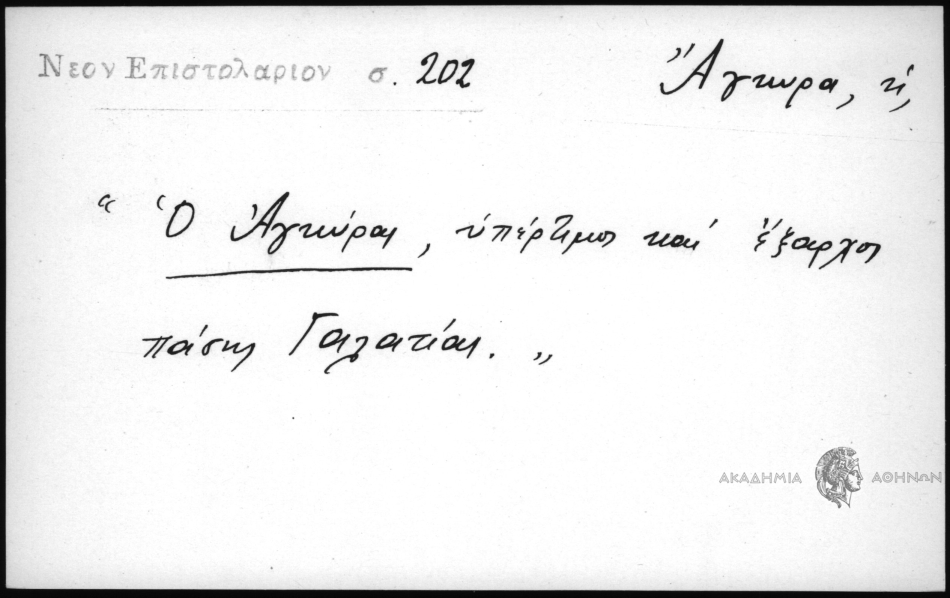 Νεον Επιστολαριον σ. 202
Ἄγκυρα, ἡ,
“ Ὁ Ἀγκύρας, ὑπέρτιμος καὶ ἔξαρχος
πάσης Γαλατίας. „
ΑΚΑΔΗΜΙΑ ΑΘΗΝΩΝ